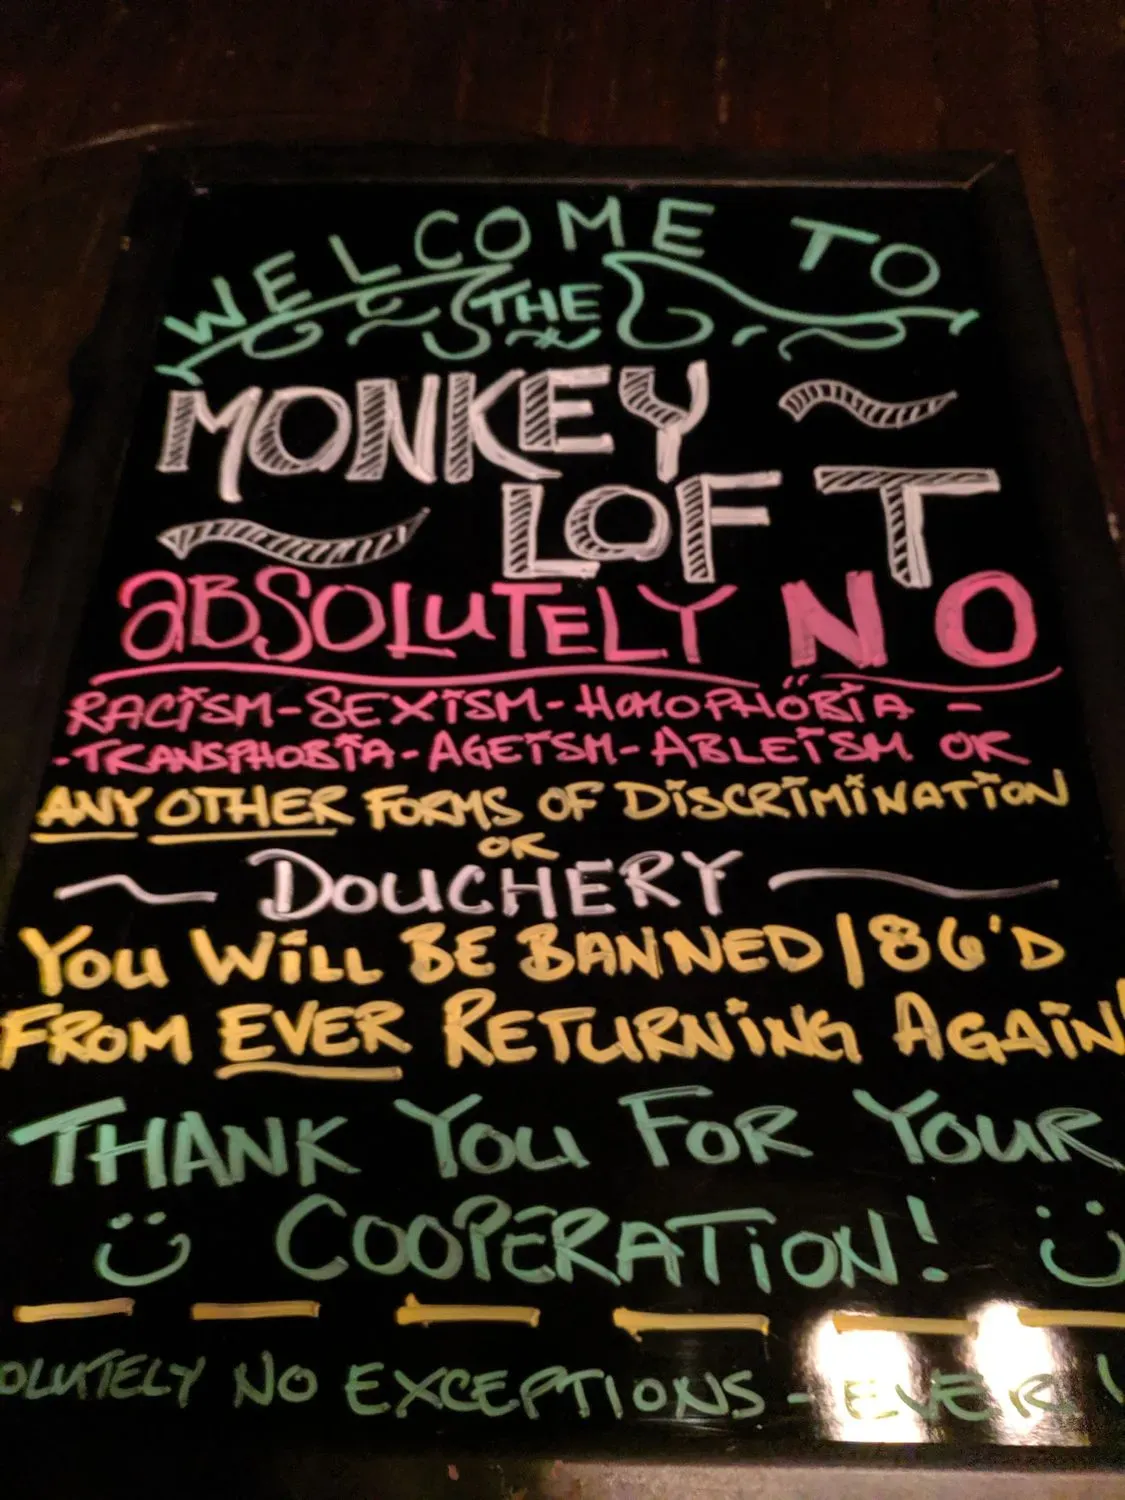 WELCOME TO
THE
MONKEY
LOFT
ABSOLUTELY NO
RACISM-SEXISM-HOMOPHOBIA -
-TRANSPHOBIA-AGEISM-ABLEISM OR
ANY OTHER FORMS OF DISCRIMINATION
OR
DOUCHERY
YOU WILL BE BANNED/86'D
FROM EVER RETURNING AGAIN!
THANK YOU FOR YOUR
COOPERATION!
OLUTELY NO EXCEPTIONS - EVER